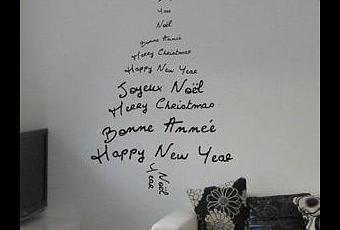 Year
Noël
Bonne Année
Merry Christmas
Happy New Year
Joyeux Noël
Merry Christmas
Bonne Année
Happy New Year
Year
Noël